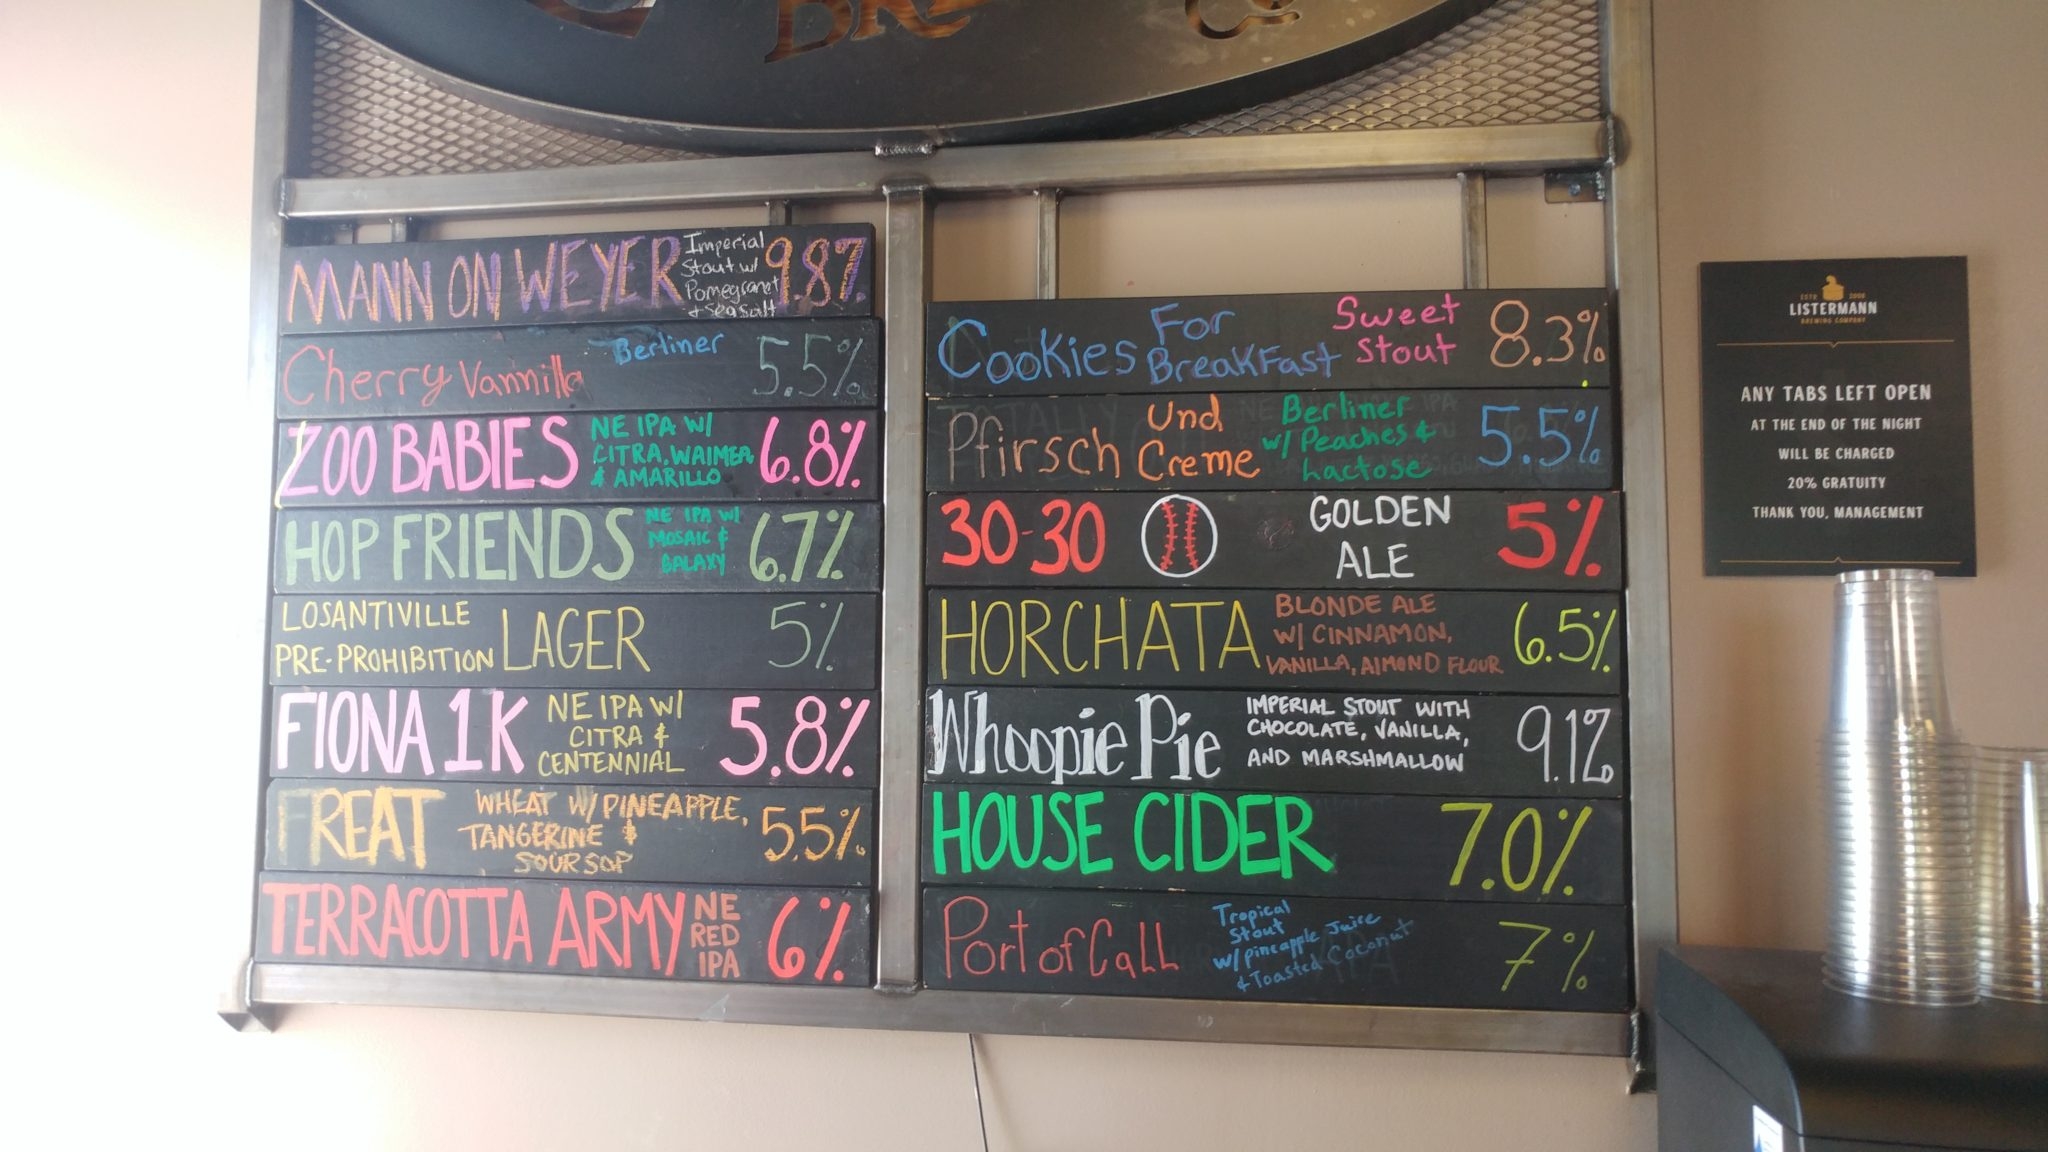 BR
MANN ON WEYER
Imperial
Stout w/
Pomegranet
+ Sea Salt
9.8%
Cherry Vannilla
Berliner
5.5%
ZOO BABIES
NE IPA W/
CITRA, WAIMEA,
& AMARILLO
6.8%
HOP FRIENDS
NE IPA W/
MOSAIC &
GALAXY
6.7%
LOSANTIVILLE
PRE-PROHIBITION
LAGER
5%
FIONA 1K
NE IPA W/
CITRA &
CENTENNIAL
5.8%
FREAT
WHEAT W/ PINEAPPLE,
TANGERINE &
SOURSOP
5.5%
TERRACOTTA ARMY
NE
RED
IPA
6%
Cookies For
Breakfast
Sweet
Stout
8.3%
Pfirsch Und
Creme
Berliner
w/ Peaches &
Lactose
5.5%
30-30
GOLDEN
ALE
5%
HORCHATA
BLONDE ALE
W/ CINNAMON,
VANILLA, ALMOND FLOUR
6.5%
Whoopie Pie
IMPERIAL STOUT WITH
CHOCOLATE, VANILLA,
AND MARSHMALLOW
9.1%
HOUSE CIDER
7.0%
Port of Call
Tropical
Stout
w/ pineapple Juice
& Toasted Coconut
7%
ESTD 2008
LISTERMANN
BREWING COMPANY
ANY TABS LEFT OPEN
AT THE END OF THE NIGHT
WILL BE CHARGED
20% GRATUITY
THANK YOU, MANAGEMENT